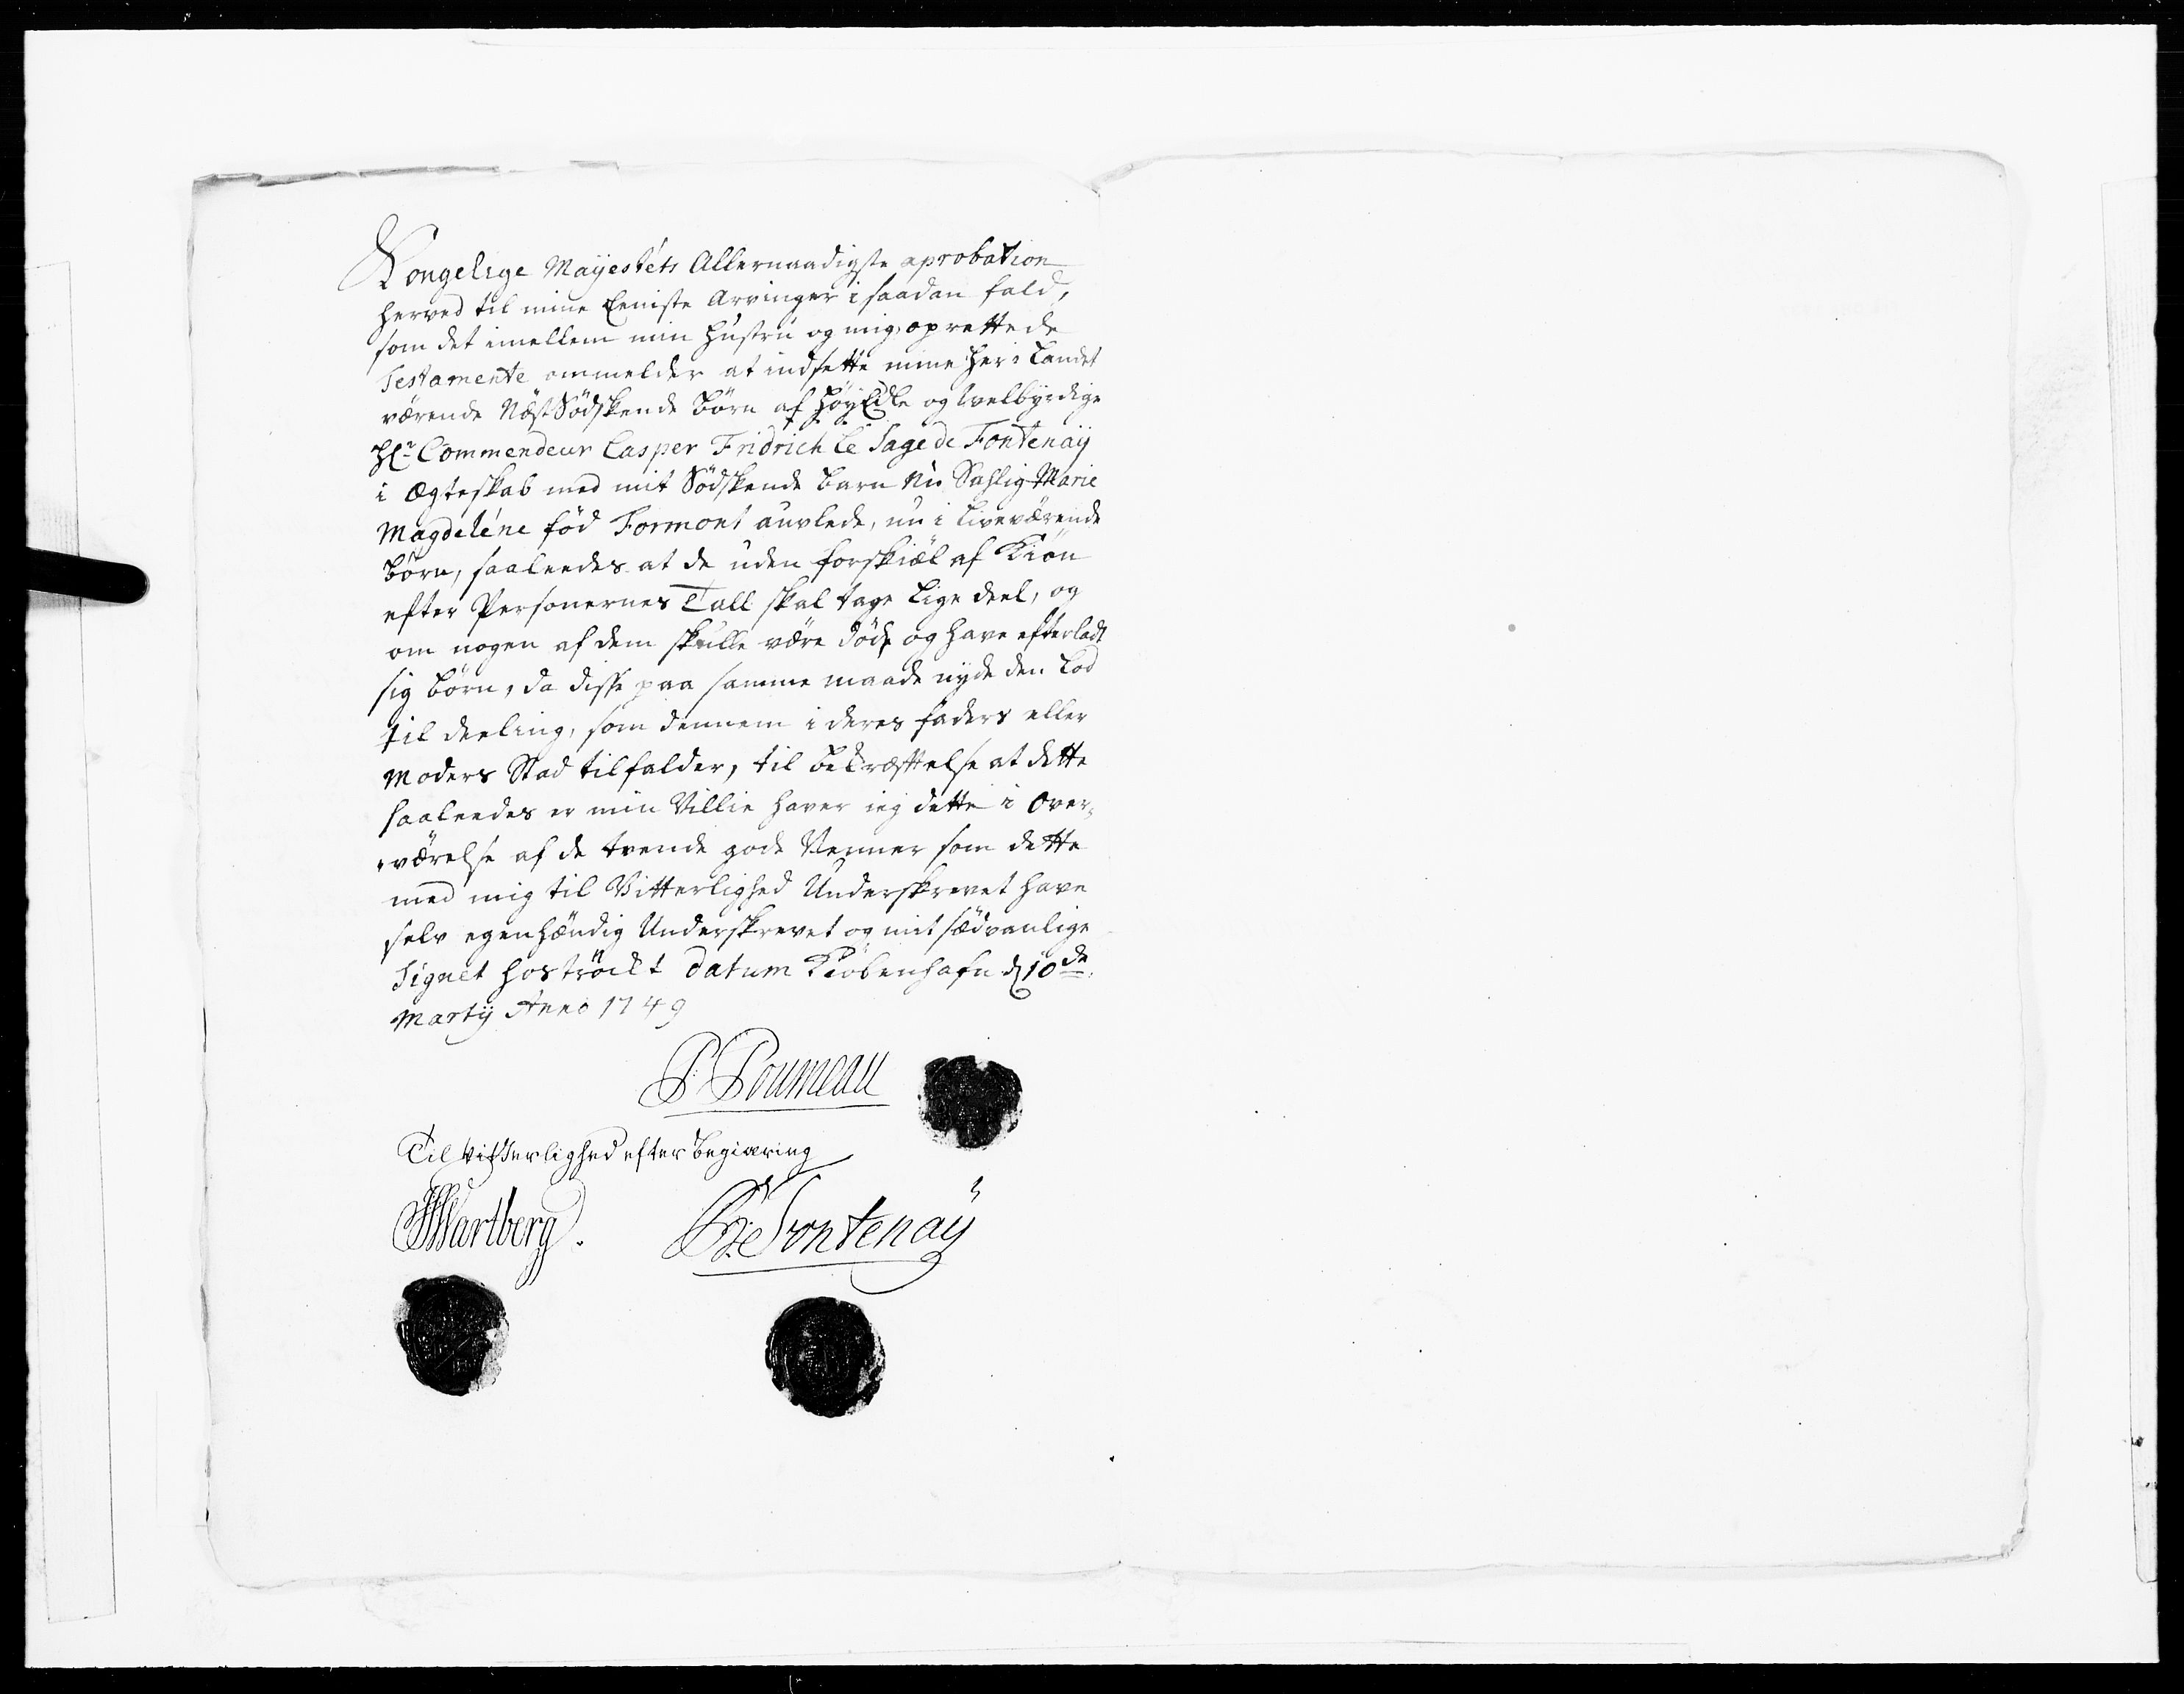 Kongelige Mayestéts Allernaadigste aprobation
herved til mine Eeniste Arvinger i saadan fald,
som det imellem min Hustru og mig oprettede
Testamente ommelder at indsette mine her i Landet
værende Næst Södskende Börn af HöyEdle og Velbyrdige
Hr. Commendeur Casper Fridrich le Sage de Fontenaÿ
i Ægteskab med mit Södskende Barn Nu Sahlig Marie
Magdeléne föd Formont auvlede, nu i Liveværende
Börn, saaleedes at de uden forskiæl af Kiön
efter Personernes Tall skal tage Lige deel, og
om nogen af dem skulle være död og have efterladt
sig Börn, da disse paa samme maade nyde den Lod
til deeling, som dennem i deres faders eller
Moders Stad tilfalder, til bekræftelse at dette
saaleedes er min Villie haver ieg dette i Over-
værelse af de tvende gode Venner som dette
med mig til Vitterlighed Underskrevet have
selv egenhændig Underskrevet og mit sædvanlige
Signet hoströckt datum Kiöbenhafn d 10de
Martÿ Anno 1749
P. Poumeau
Til Vitterlighed efter Begiæring
Wartberg. De Fontenaÿ